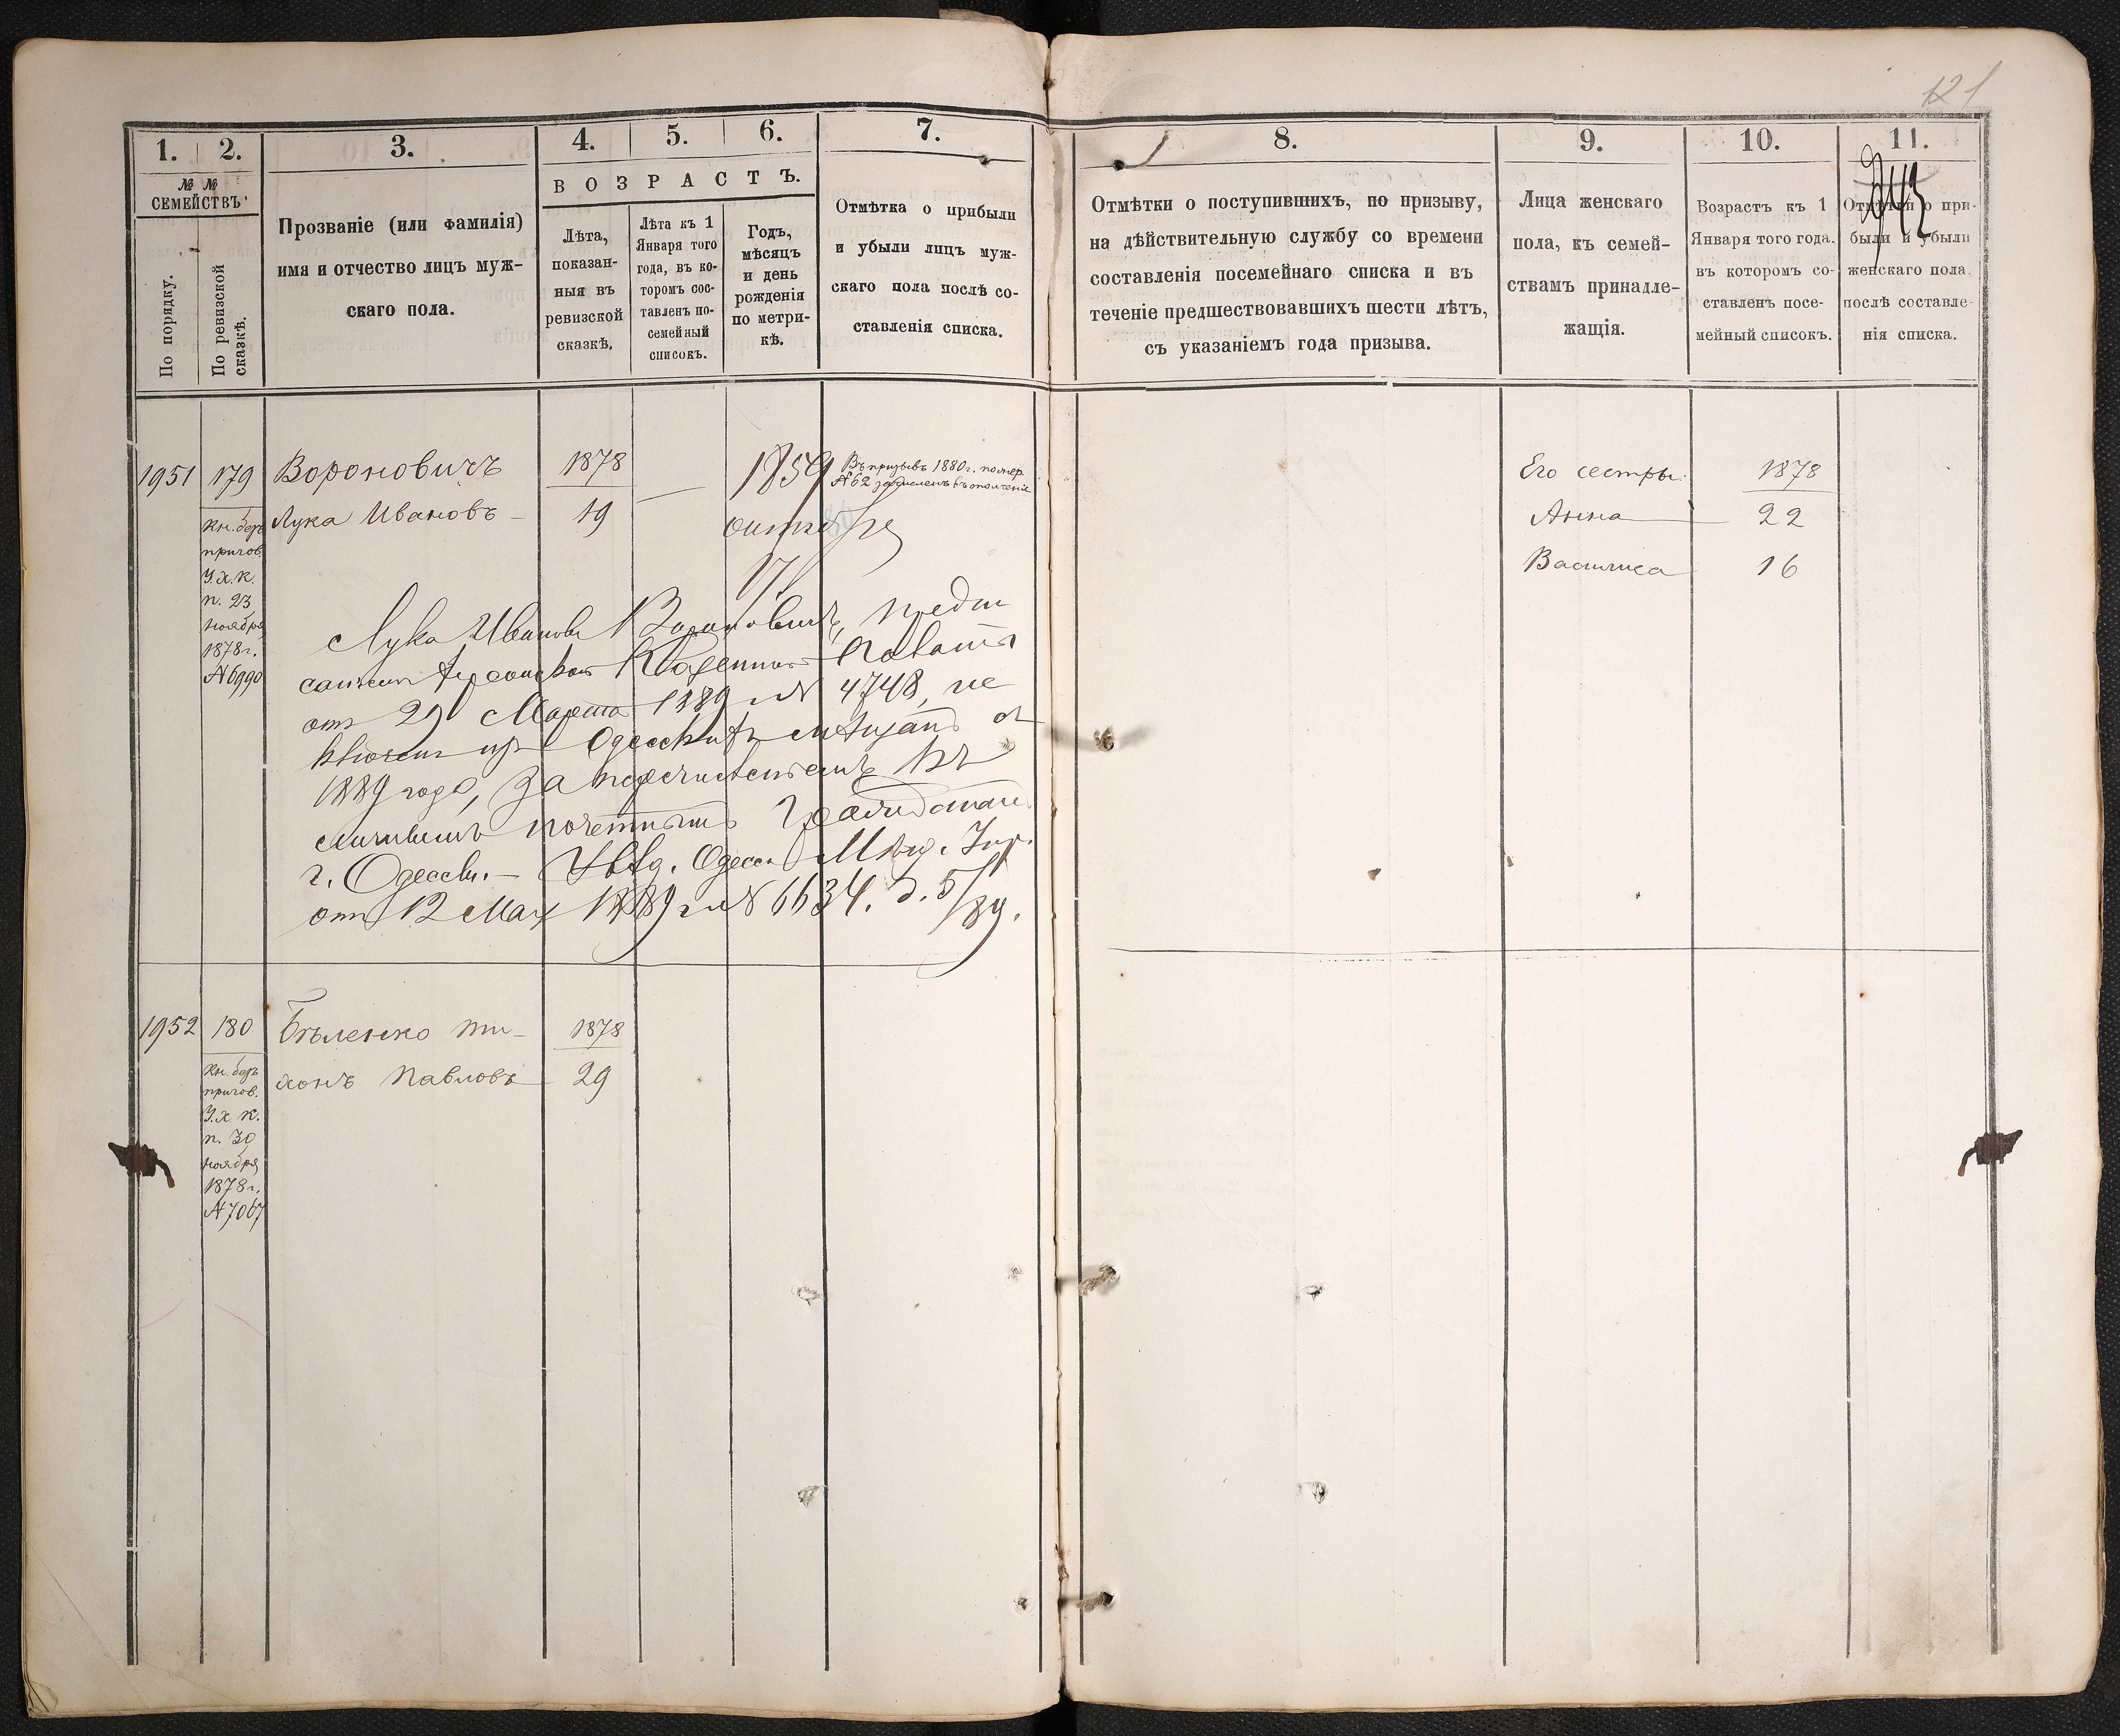 121
1. 2. 3. 4. 5. 6. 7.
№ №
СЕМЕЙСТВЪ
По порядку.
По ревизской
сказкѣ.
Прозваніе (или фамилія)
имя и отчество лицъ муж-
скаго пола.
ВОЗРАСТЪ.
Лѣта,
показан-
ныя въ
ревизской
сказкѣ.
Лѣта къ 1
Января того
года, въ ко-
торомъ сос-
тавленъ по-
семейный
списокъ.
Годъ,
мѣсяцъ
и день
рожденія
по метри-
кѣ.
Отмѣтка о прибыли
и убыли лицъ муж-
скаго пола послѣ со-
ставленія списка.
8. 9. 10. 11.
Отмѣтки о поступившихъ, по призыву,
на дѣйствительную службу со времени
составленія посемейнаго списка и въ
теченіе предшествовавшихъ шести лѣтъ,
съ указаніемъ года призыва.
Лица женскаго
пола, къ семей-
ствамъ принадле-
жащія.
Возрастъ къ 1
Января того года,
въ которомъ со-
ставленъ посе-
мейный списокъ.
Отмѣтки о при-
были и убыли
женскаго пола
послѣ составле-
нія списка.
1951
179
Кн. бер
пригов.
У.х.к.
п. 23
ноября
1878 г.
№ 6990
Вороновичъ
Лука Ивановъ
1878
19
—
1859
октября
17
Въ призывъ 1880 г. по жер.
№ 62 зачисленъ въ ополченіе
Лука Ивановъ Вороновичъ, предпи
саніемъ Херсонской Казенной Палаты
отъ 29 Марта 1889 г. № 4748, ис
ключенъ изъ Одесскихъ мѣщанъ съ
1889 года, за перечисленіемъ въ
личнымъ почетнымъ гражданам
г. Одессы. — Увѣд. Одесск. Мѣщ. Упр.
отъ 12 Мая 1889 г. № 6634. д. 5/89.
Его сестры:
Анна
Василиса
1878
22
16
1952
180
Кн. бер
пригов.
У.х.к.
п. 30
ноября
1878 г.
№ 7067
Бѣленко Ти-
хонъ Павловъ
1878
29